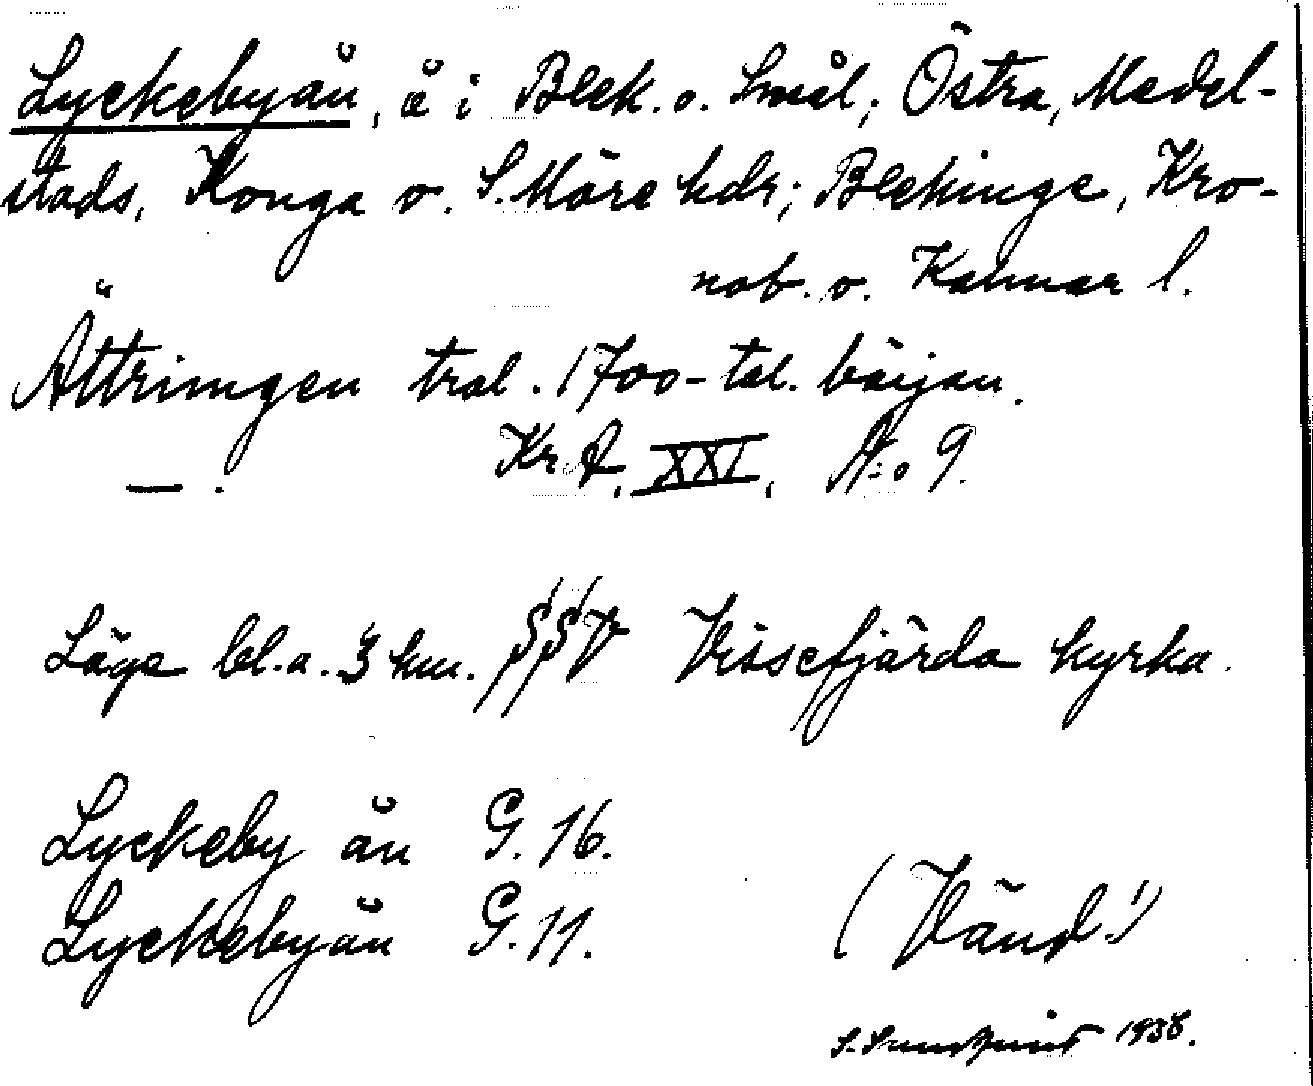 Lyckebyån, å i Blek. o. Smål; Östra, Medel-
stads, Konga o. S. Möre hdr; Blekinge, Kro-
nob. o. Kalmar l.
Ättringen tral. 1700-tal. början.
— . Kr. A. XXI, No 9.
Läge bl.a. 3 km. SSV Vissefjärda kyrka.
Lyckeby ån G. 16.
Lyckebyån G. 11.
(Vänd!)
S. 1938.